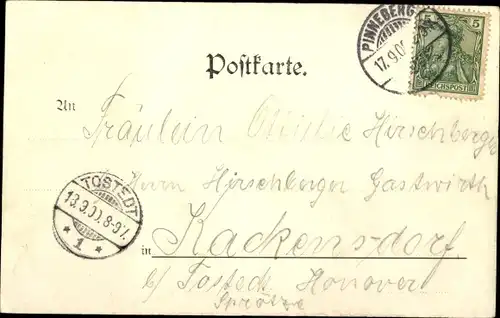 PINNEBERG
17.9.00
5 5
REICHSPOST
Postkarte.
An
Fräulein Hirschberger
Herrn Hirschberger Gastwirth
TOSTEDT
13.9.00.8-9V.
* 1 *
in Kackensdorf.
b/ Tostedt Hanover
Sprötze